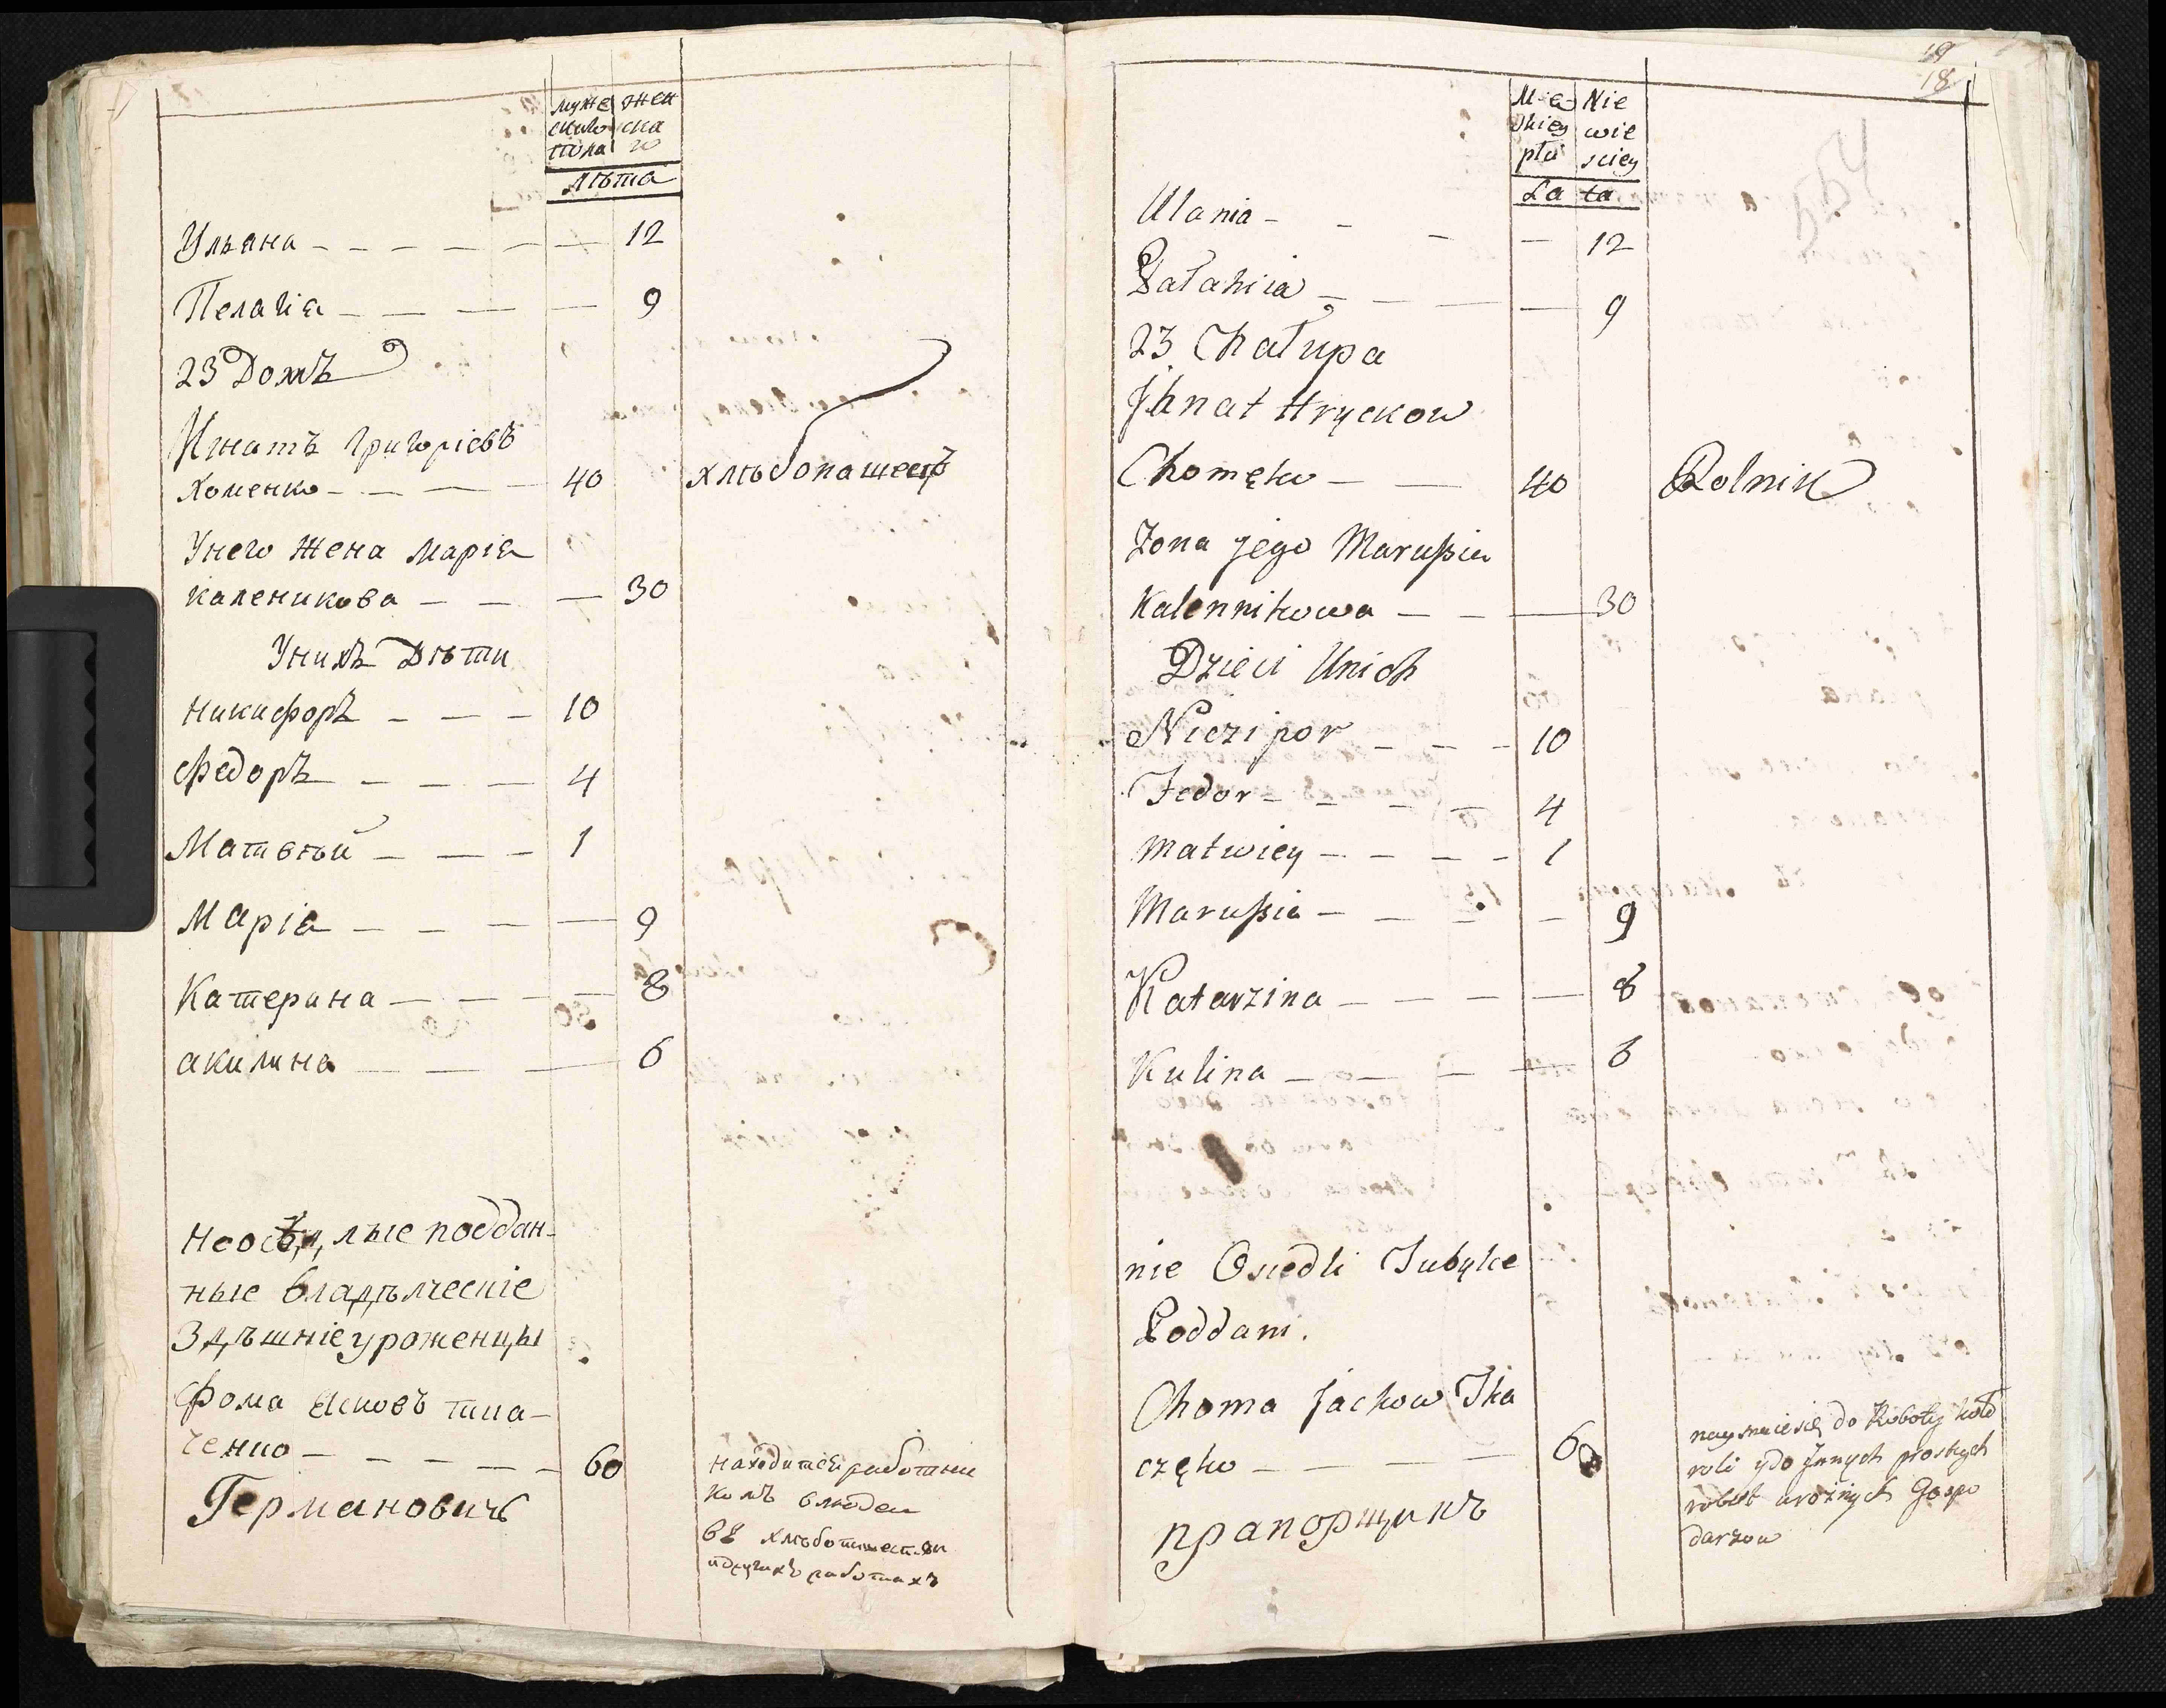 муже жен
скаго ска
пола го
лѣта
Ульяна - - - - - - 12
Пелагія - - - - 9
23 Домъ
Игнатъ Григорієвъ
Хоменко - - - - 40 хлѣбопашецъ
Унего жена Марія
каленикова - - - 30
Унихъ Дѣти
Никифоръ - - - 10
Федоръ - - - 4
Матвѣй - - - 1
Марія - - - - 9
Катерина - - - - 8
акилина - - - 6
Неосѣдлые поддан-
ные владѣлческіе
Здѣшніе уроженцы
Фома Яковъ тка-
ченко - - - - - 60
Германовичъ
находится работни
комъ влюдей
въ хлѣбопашествѣ
идругихъ работахъ
19
18
554
Męs Nie
skiey wie
płci sciey
Lata
Ulania - - - - 12
Pałahiia - - - - 9
23 Chałupa
Jhnat Hryckow
Chomęko - - 40 Rolnik
Zona jego Marußia
Kalennikowa - - - 30
Dzieci Unich
Niczipor - - - 10
Fedor - - - - 4
Matwiey - - - - 1
Marußia - - - - 9
Katarzina - - - - 8
Kulina - - - - 6
nie Osiedli Tubylce
Poddani.
Choma Jackow Tka
częko - - - - 60
прапорщикъ
naymuie się do Roboty koło
roli ydo Jnnych prostych
robot uroźnych Gospo
darzow